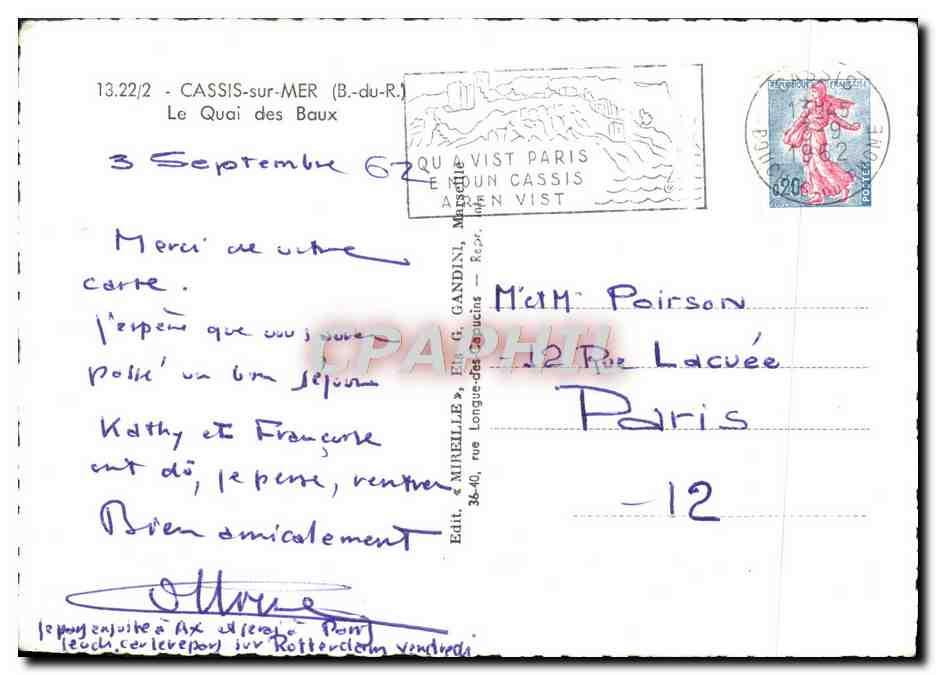 13.22/2 - CASSIS-sur-MER (B.-du-R.)
Le Quai des Baux
3 Septembre 62
Merci de votre
carte.
j'espère que vous avez
passé un bon séjour
Kathy et Françoise
ont dû, je pense, rentrer
Bien amicalement
à Ax et serai à Paris
jeudi, car je repars sur Rotterdam vendredi
Edit. « MIREILLE », Ets G. GANDINI, Marseille
36-40, rue Longue-des-Capucins — Repr. int.
QU A VIST PARIS
E NOUN CASSIS
A REN VIST
REPUBLIQUE FRANÇAISE
0,20
POSTES
CASSIS
1962
M et M Poirson
12 Rue Lacuée
Paris
-12
CPAPHIL